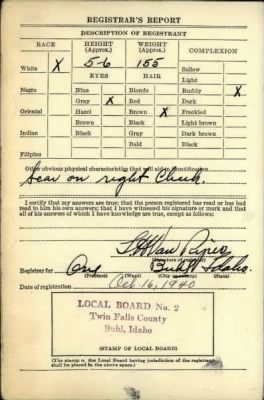 REGISTRAR'S REPORT
DESCRIPTION OF REGISTRANT
RACE HEIGHT (Approx.) WEIGHT (Approx.) COMPLEXION
White X 5-6 155 Sallow
EYES HAIR Light
Negro Blue Blonde Ruddy X
Gray X Red Dark
Oriental Hazel Brown X Freckled
Brown Black Light brown
Indian Black Gray Dark brown
Bald Black
Filipino
Other obvious physical characteristics that will aid in identification
Scar on right Cheek.
I certify that my answers are true; that the person registered has read or has had
read to him his own answers; that I have witnessed his signature or mark and that
all of his answers of which I have knowledge are true, except as follows:
(Signature of registrar)
Registrar for One Buhl Idaho.
(Precinct) (Ward) (City or county) (State)
Date of registration Oct. 16, 1940
LOCAL BOARD No. 2
Twin Falls County
Buhl, Idaho
(STAMP OF LOCAL BOARD)
(The stamp of the Local Board having jurisdiction of the registrant
shall be placed in the above space.)